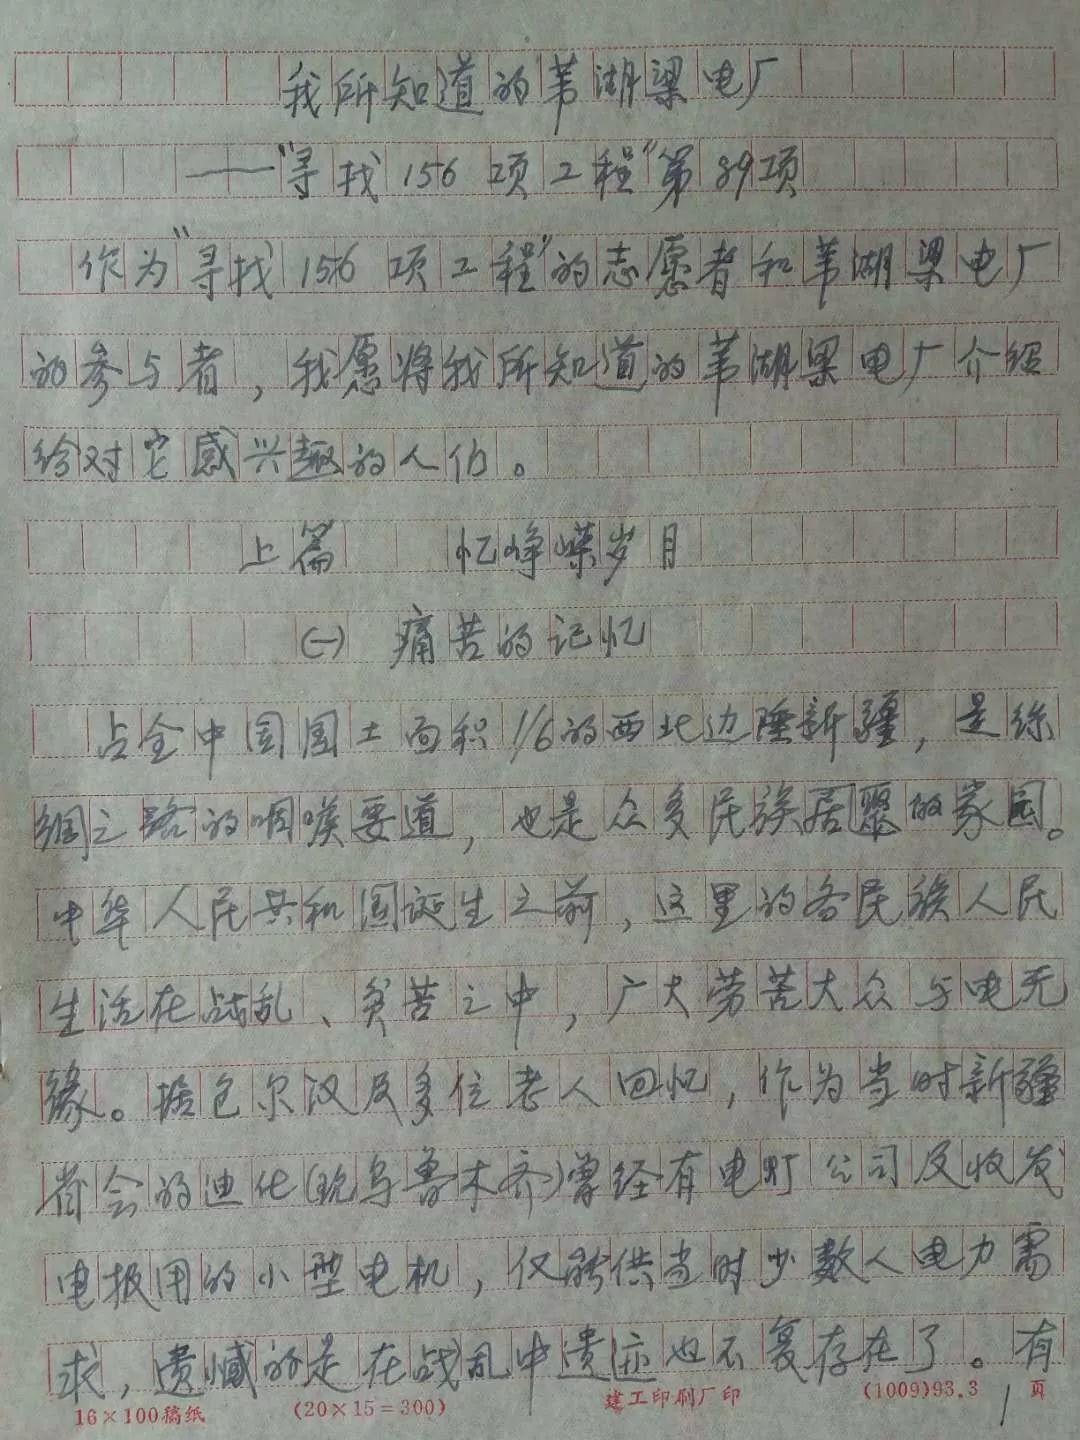 我所知道的苇湖梁电厂
——“寻找156项工程”第89项
作为“寻找156项工程”的志愿者和苇湖梁电厂
的参与者，我愿将我所知道的苇湖梁电厂介绍
给对它感兴趣的人们。
上篇 忆峥嵘岁月
(一) 痛苦的记忆
占全中国国土面积1/6的西北边陲新疆，是丝
绸之路的咽喉要道，也是众多民族居聚的家园。
中华人民共和国诞生之前，这里的各民族人民
生活在战乱、贫苦之中，广大劳苦大众与电无
缘。据包尔汉及多位老人回忆，作为当时新疆
省会的迪化(现乌鲁木齐)曾经有电灯公司及收发
电报用的小型电机，仅能供当时少数人电力需
求，遗憾的是在战乱中遗迹也不复存在了。有
16×100稿纸 (20×15=300) 建工印刷厂印 (1009)93.3 1 页